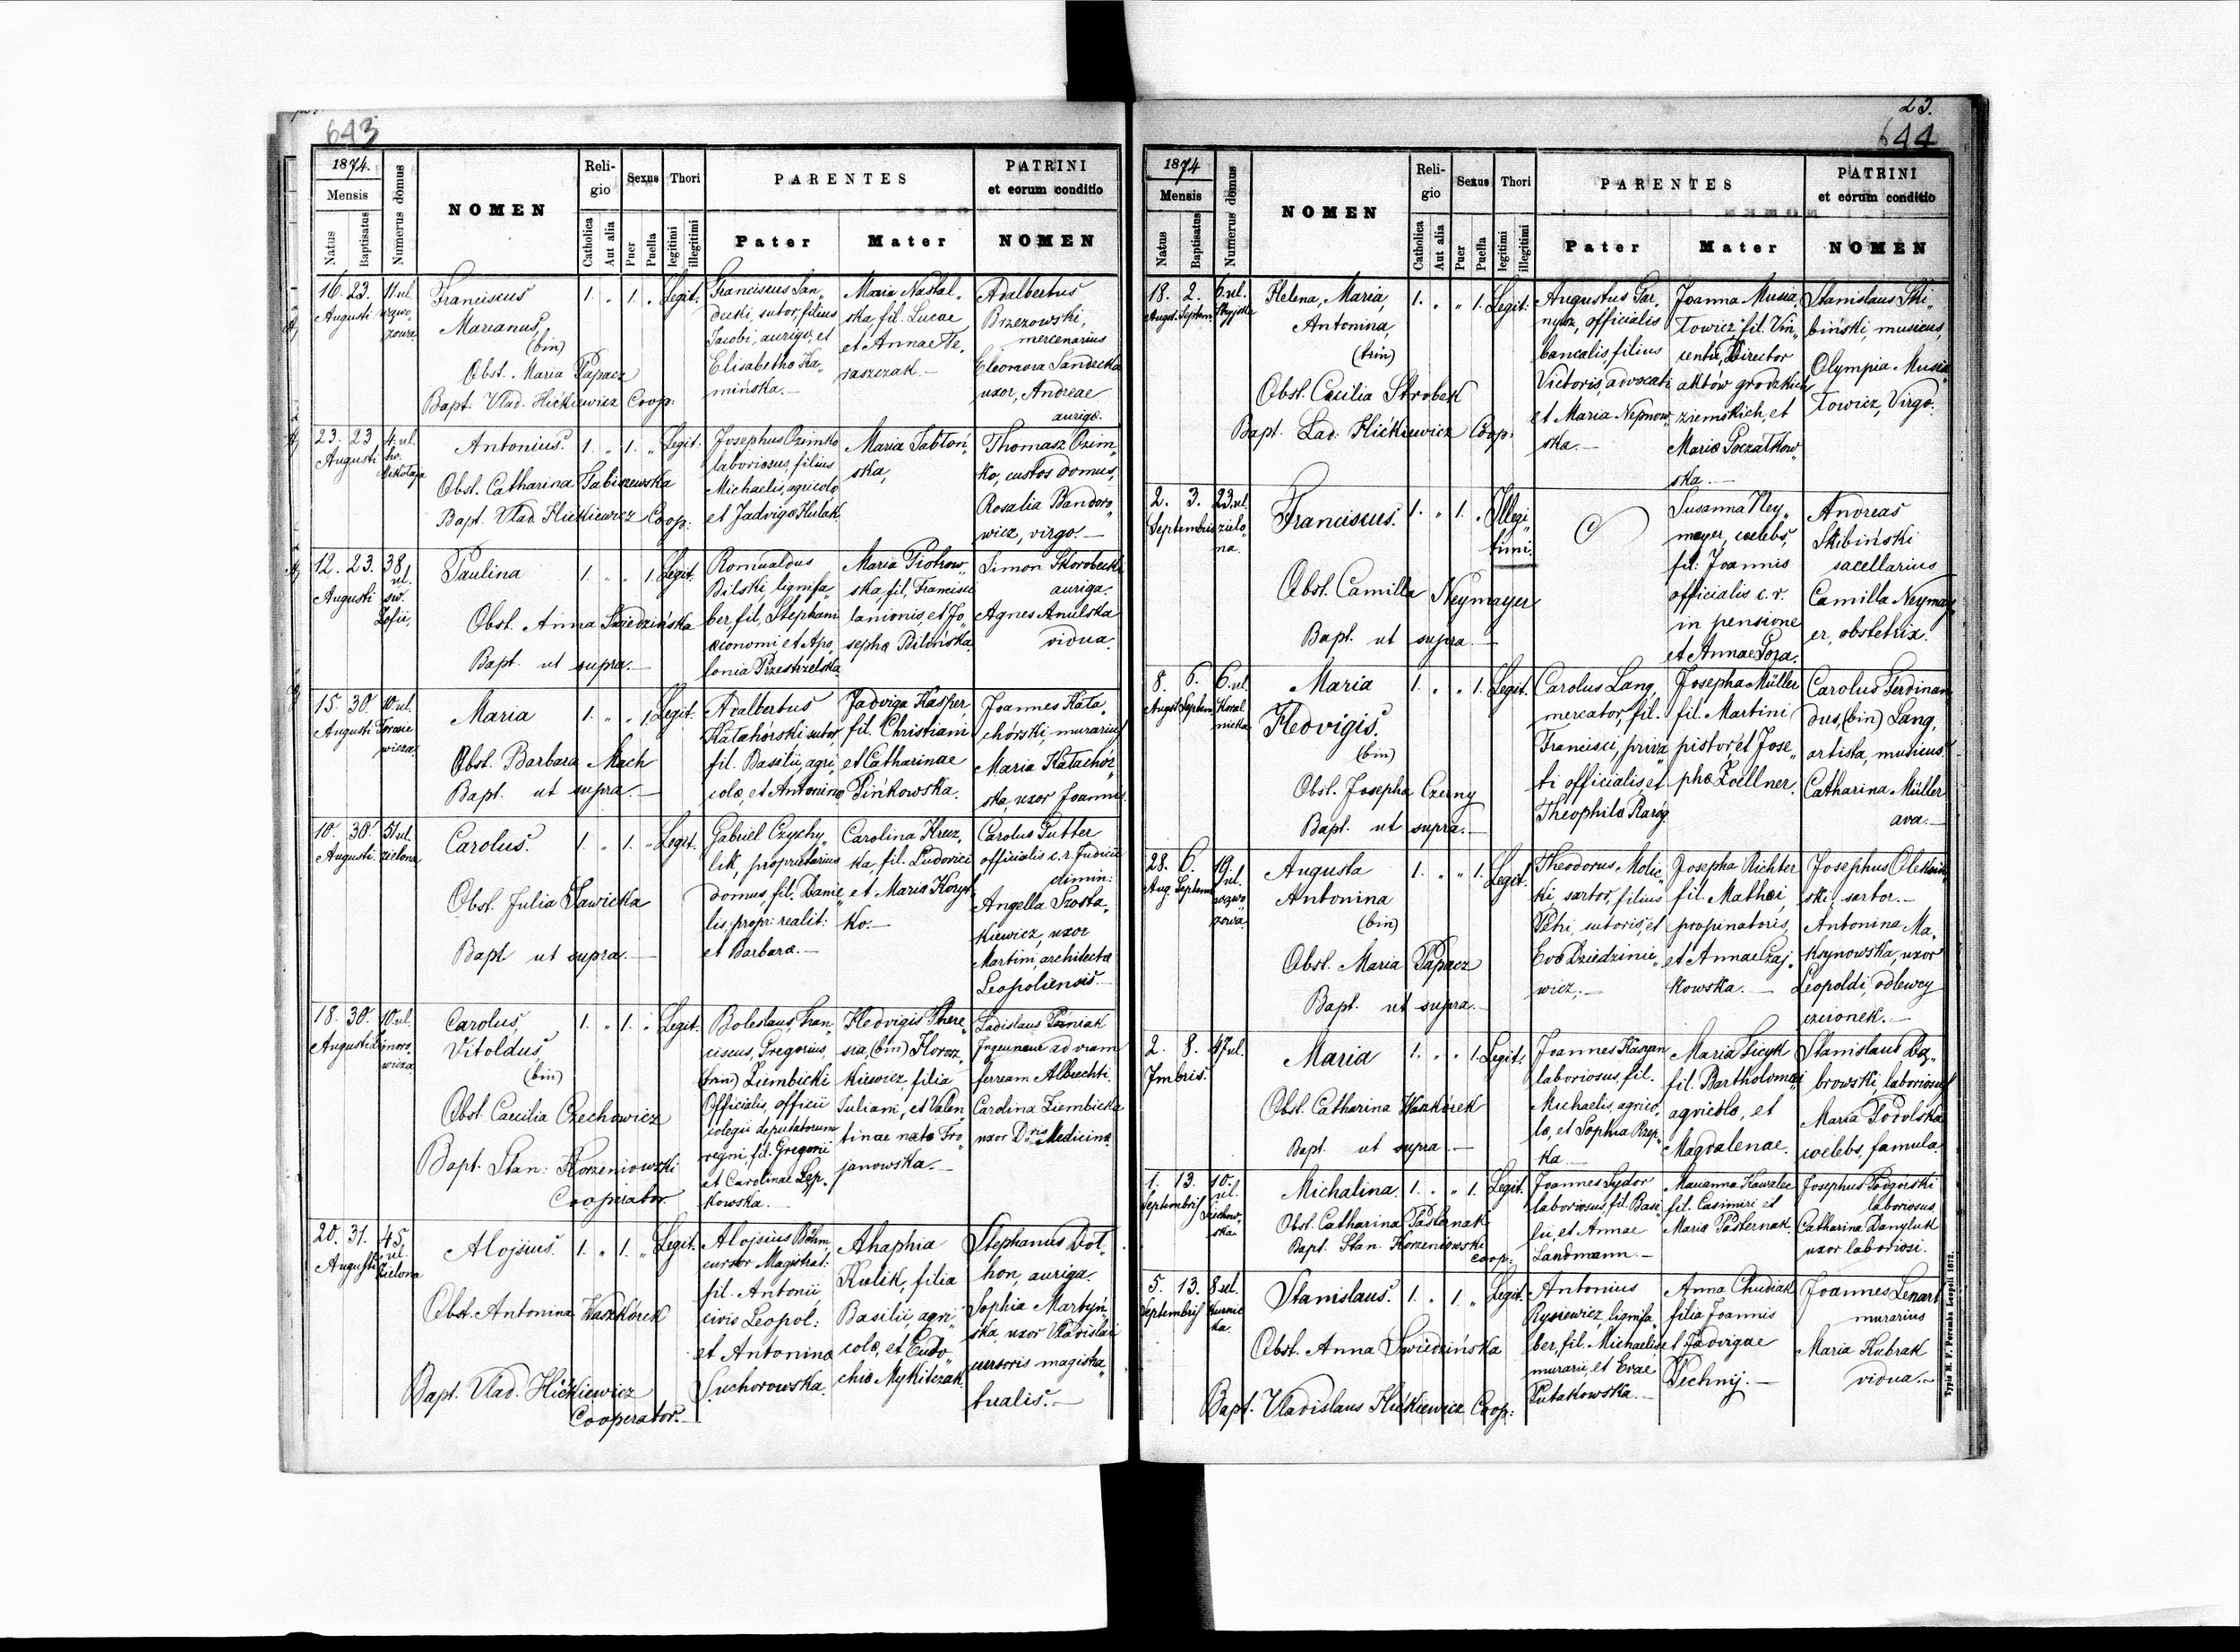 643
1874.
Mensis
Natus
Baptisatus
Numerus domus
NOMEN
Reli-
gio
Catholica
Aut alia
Sexus
Puer
Puella
Thori
legitimi
illegitimi
PARENTES
Pater
Mater
PATRINI
et eorum conditio
NOMEN
16. 23.
Augusti
11. ul.
Franciscus
Marianus,
(bin)
Obst. Maria Papacz
Bapt. Vlad. Hićkiewicz Coop:
1. „ 1. „ Legit.
Franciscus San„
decki, sutor, filius
Jacobi, aurigæ, et
Elisabetha Ka„
mińska.—
Maria Nastal„
ska, fil. Lucae
et Annae Te„
raszczak.—
Adalbertus
Brzezowski,
mercenarius
Eleonora Sandecka
uxor, Andreae
aurigæ.
23. 23
Augusti
4. ul.
św.
Mikołaja
Antonius.
Obst. Catharina
Bapt. Vlad Hićkiewicz Coop:
1. „ 1. „ Legit.
Josephus Ozimko
laboriosus, filius
Michaelis, agricolæ
et Jadvigæ Hulak.
Maria Jabłoń„
ska,
Thomasz Ozim„
ko, custos domus,
Rosalia Bandoro„
wicz, virgo.—
12. 23.
Augusti
38.
ul.
św.
Zofii,
Paulina
Obst. Anna Świedzińska
Bapt. ut supra.—
1. „ „ 1. Legit.
Romualdus
Bilski, lignifa„
ber, fil. Stephani
œconomi et Apo„
lonia Przestrzelska
Maria Piotrow„
ska, fil. Francisci
lanionis, et Jo„
sephæ Bilińska.
Simon Skorobecki
auriga.
Agnes Anulska
vidua.
15. 30.
Augusti
10. ul.
Maria
Obst. Barbara Mach
Bapt. ut supra.—
1. „ „ 1. Legit.
Adalbertus
Katahórski sutor,
fil. Basilii, agri„
colæ, et Antoninæ
Jadviga Kasper,
fil. Christiani
et Catharinae
Pińkowska.
Joannes Kata„
chórski, murarius
Maria Katachór„
ska, uxor Joannis.
10. 30.
Augusti.
51 ul.
zielona
Carolus.
Obst. Julia Sawicka
Bapt ut supra.—
1. „ 1. „ Legit.
Gabriel Czychy„
lik, proprietarius
domus, fil. Danie„
lis, propr: realit:
et Barbaræ.—
Carolina Kruz„
ka, fil. Ludovici
et Maria
ko.—
Carolus Gutter
officialis c.r. Judicii
Angella Szosta„
kiewicz, uxor
Martini, architectæ
Leopoliensis.—
18. 30.
Augusti
10. ul.
Carolus,
Vitoldus,
(bin)
Obst. Caecilia Czechowicz
Bapt. Stan: Korzeniowski
Cooperator.
1. „ 1. „ Legit.
Boleslaus, Fran„
ciscus, Gregorius,
(trin) Ziembicki
Officialis, officii
colegii deputatorum
regni, fil. Gregorii
et Carolinae Lep„
kowska.—
Hedvigis There„
sia, (bin) Horosz„
kiewicz, filia
Juliani, et Valen
tinae natæ Tro„
janowska.—
Ladislaus Poźniak
Ingenieur ad viam
ferream Albrechti.
Carolina Ziembicka
uxor Dris Medicinæ.
20. 31.
Augusti
45.
ul.
Zielona
Alojsius.
Obst. Antonina Waszkórek
Bapt. Vlad. Hićkiewicz
Cooperator.—
1. „ 1. „ Legit.
Alojsius Böhm,
cursor Magistrat:
fil. Antonii,
civis Leopol:
et Antoninæ
Suchorowska.
Ahaphia
Kulik, filia
Basilii, agri„
colæ, et Eudo„
chiæ Mykitczak.
Stephanus Doł„
hon, auriga.
Sophia Martyń„
ska, uxor Vladislai
cursoris magistra„
tualis.—
23.
644
1874
Mensis
Natus
Baptisatus
Numerus domus
NOMEN
Reli-
gio
Catholica
Aut alia
Sexus
Puer
Puella
Thori
legitimi
illegitimi
PARENTES
Pater
Mater
PATRINI
et eorum conditio
NOMEN
18. 2.
August. Septem.
6. ul.
Stryjska
Helena, Maria,
Antonina,
(trin)
Obst. Cæcilia Strobek
Bapt. Lad. Hićkiewicz Coop:
1. „ „ 1. Legit:
Augustus Gar„
nysz, officialis
bancalis, filius
Victoris, advocati
et Maria Nepnow„
ska.—
Joanna Musia
łowicz fil. Vin„
centii, Director
aktów grodzkich
ziemskich, et
Mariæ Początkow„
ska.—
Stanislaus Ski„
biński, musicus,
Olympia Musia„
łowicz, Virgo.
2. 3.
Septembris
23. ul.
zielo„
na.
Franciscus.
Obst. Camilla Neymayer
Bapt. ut supra.—
1. „ 1. „ Illegi„
timi.
Susanna Ney„
mayer, cœlebs,
fil: Joannis
officialis c. r.
in pensione
et Annae Pora.
Andreas
Skibiński
sacellarius
Camilla Neymay„
er, obstetrix.
8. 6.
August. Septem.
6. ul.
Maria
Hedvigis.
(bin)
Obst. Josepha Czerny
Bapt. ut supra.—
1. „ „ 1. Legit.
Carolus Lang,
mercator, fil.
Francisci, priva„
ti officialis, et
Theophila Raróg.
Josepha Müller
fil. Martini
pistor, et Jose„
phæ Zoellner.
Carolus Ferdinan„
dus, (bin) Lang,
artista, musicus
Catharina Müller
ava.—
28. 6.
Aug. Septem.
19.
ul.
Augusta
Antonina
(bin)
Obst. Maria Papacz
Bapt. ut supra.—
1. „ „ 1. Legit.
Theodorus Molic„
ki, sartor, filius
Petri, sutoris, et
Evæ Dziedzinie„
wicz.—
Josepha Richter
fil. Mathei,
propinatoris,
et Annae Czaj„
kowska.—
Josephus
ski, sartor.—
Antonina Ma„
ksynowska, uxor
Leopoldi, odlewcy
czcionek.—
2. 8.
7mbris.
47 ul.
Maria
Obst. Catharina Waszkórek
Bapt. ut supra.—
1. „ „ 1. Legit.
Joannes Kaszpan
laboriosus, fil.
Michaelis, agrico„
læ, et Sophia Rzep„
ka.—
Maria Sicyk
fil. Bartholomæi
agricolæ, et
Magdalenae.
Stanislaus Dą„
browski, laboriosus
Maria Podolska
cœlebs, famula.
1. 13.
Septembris
10.
ul.
Michalina.
Obst. Catharina Pasternak
Bapt. Stan. Korzeniowski
coop:
1. „ „ 1. Legit.
Joannes Sydor
laboriosus, fil. Basi„
lii, et Annae
Landmann.—
Marianna Kawalec
fil. Casimiri et
Maria Pasternak.
Josephus Podgórski
laboriosus
Catharina Danyluk
uxor laboriosi.
5. 13.
Septembris
8 ul.
Stanislaus.
Obst. Anna Świedzińska
Bapt. Vladislaus Hićkiewicz Coop:
1. „ 1. „ Legit.
Antonius
Rysiewicz, lignifa„
ber, fil. Michaelis
murarii, et Evae
Putakowska.—
Anna Chudiak
filia Joannis
et Jadvigae
Pechnij.—
Joannes Lenart
murarius
Maria Kubrak
vidua.—
Typis M. F. Poremba Leopoli 1872.